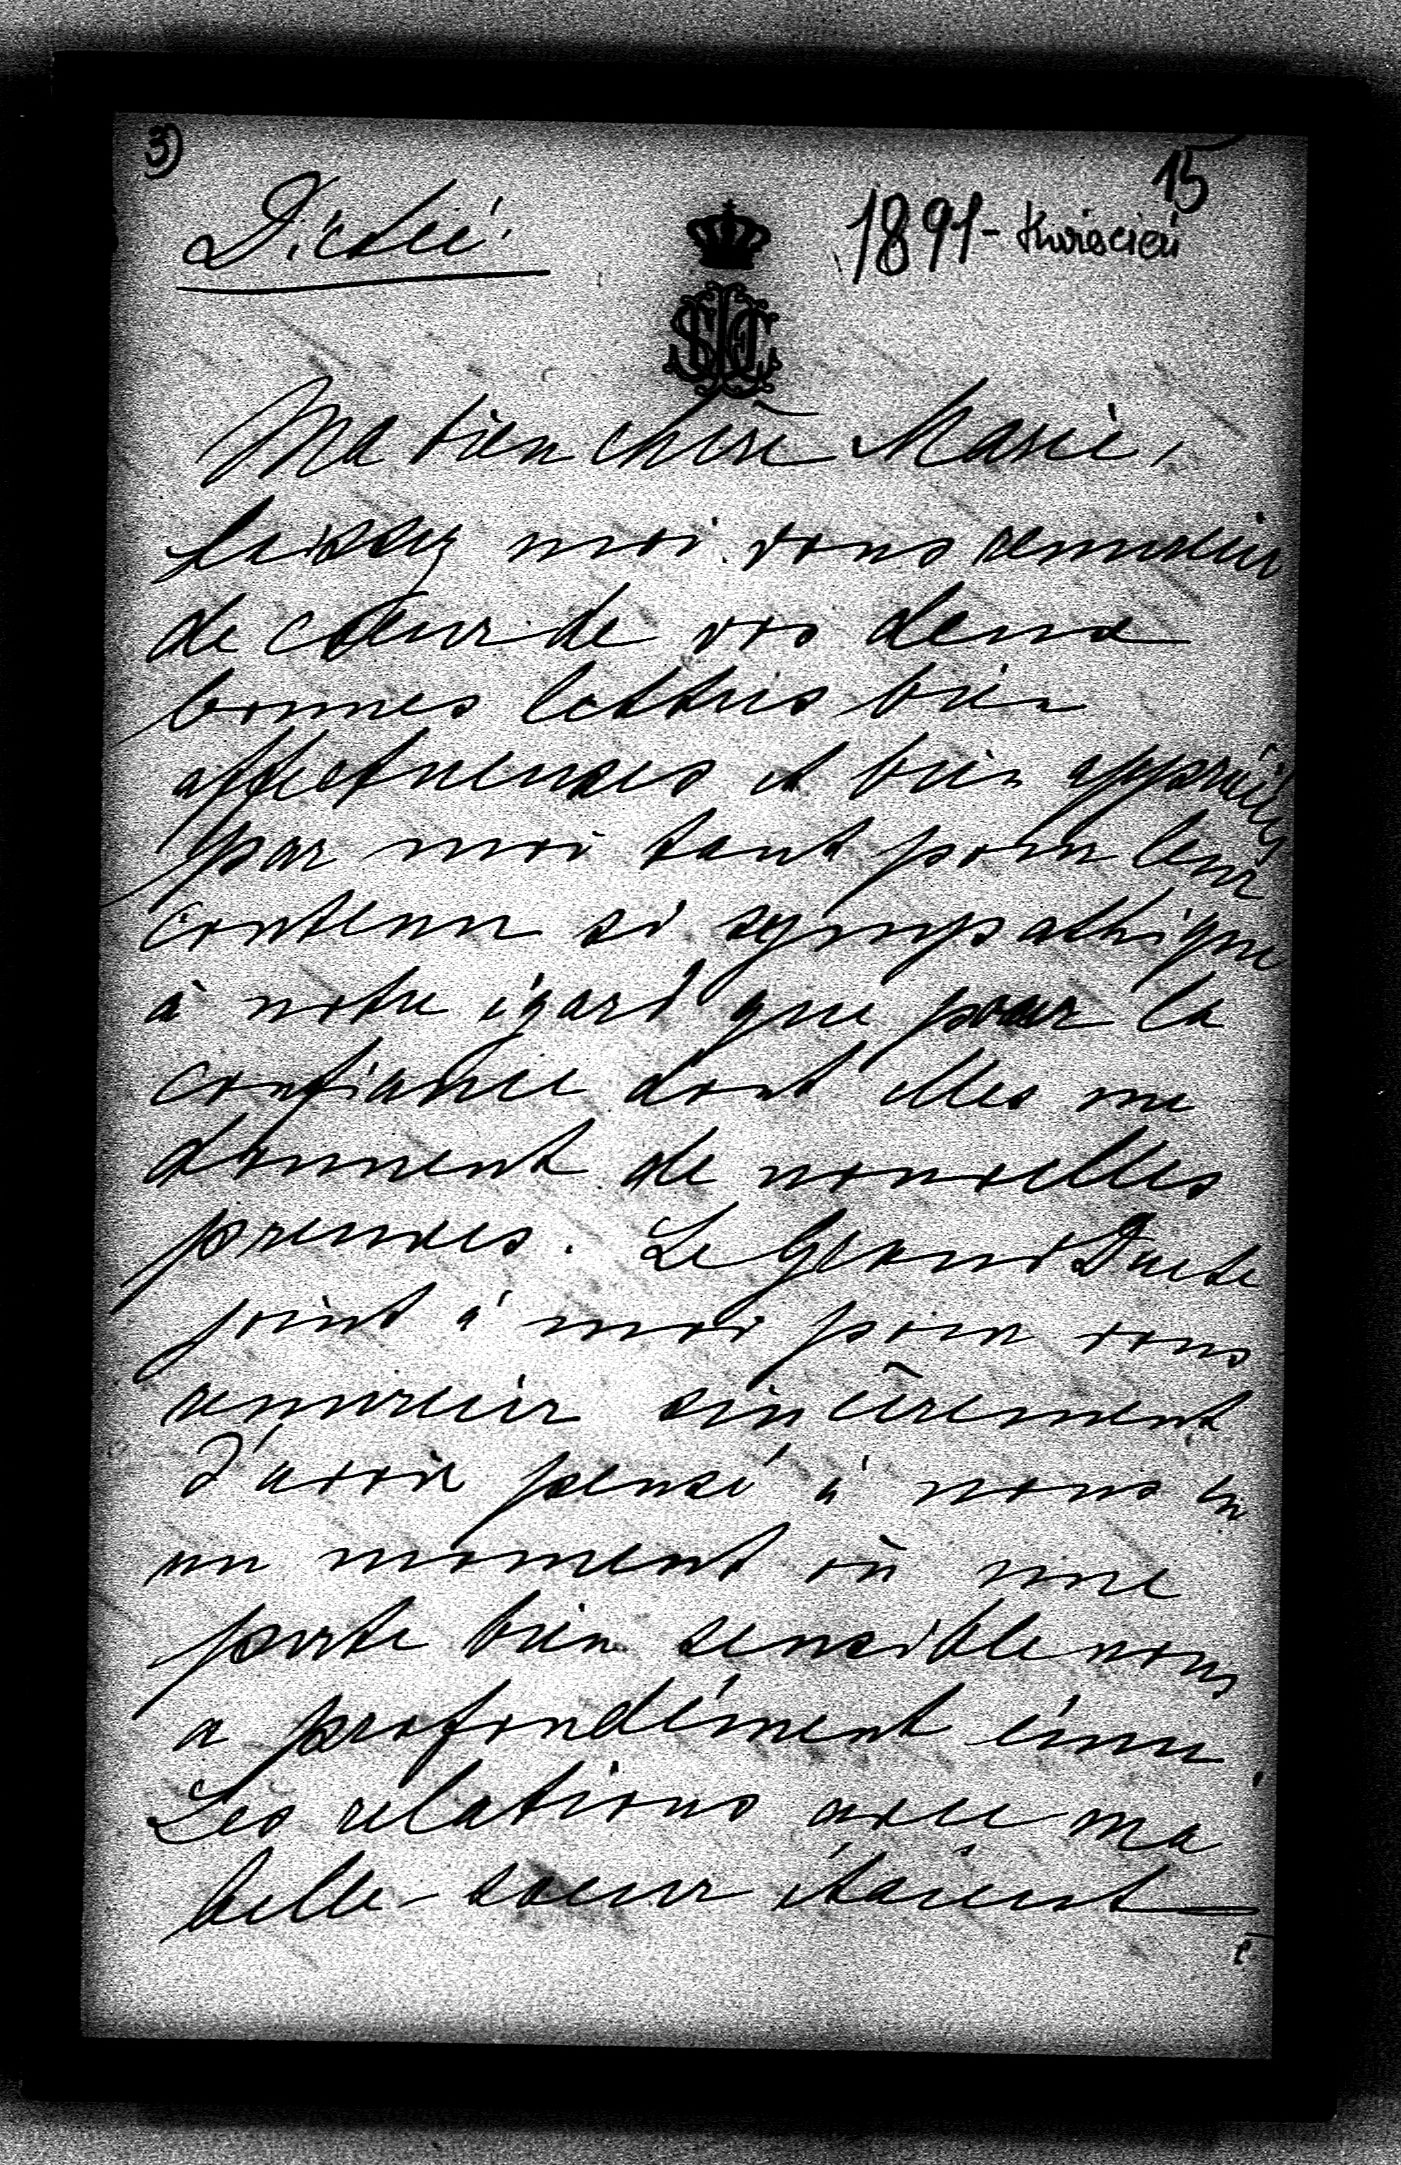 3)
15
Dicté.
1891 - Kwiecień
Ma bien chère Marie,
laissez moi vous remercier
de cœur de vos deux
bonnes lettres bien
affectueuses et bien appréciées
par moi tant pour leur
contenu si sympathique
à notre égard que pour la
confiance dont elles me
donnent de nouvelles
preuves. Le Grand Duc se
joint à moi pour vous
remercier sincèrement
d'avoir pensé à nous en
un moment où une
perte bien sensible nous
a profondément ému.
Les relations avec ma
belle-sœur étaient